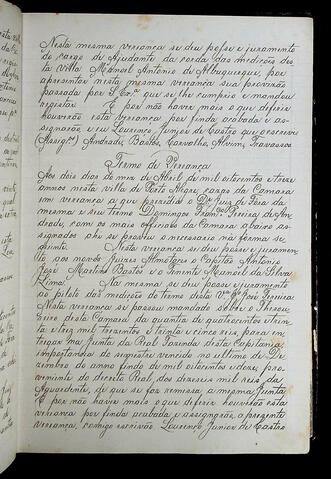 Nesta mesma vereança se deu posse e juramento
do cargo de Ajudante da corda das medições des
ta villa Manoel Antonio de Albuquerque, por
apresentar nesta mesma vereança sua provisão
passada por S. Exª que se lhe cumprio e mandou
registar. E por não haver mais o que deferir
houverão esta vereança por finda acabada e as-
signarão, e eu Lourenço Junior de Castro que escrevi
Andrade, Bastos, Carvalho, Alvim, Travassos
Termo de Vereança
Aos dois dias do mez de Abril de mil oitocentos e treze
annos nesta villa de Porto Alegre, cazas da Camara
em vereança a que presidio o Dr Juiz de Fóra da
mesma e seu termo Domingos Pereira de An-
drade, com os mais officiaes da Camara abaixo as-
signados ahi se proveu o necessario na forma se-
guinte. Nesta vereança se deu posse e juramen-
to aos novos Juizes Almotaces o Capitão Antonio
José Martins Bastos e o Tenente Manoel da Silva
Lima. Na mesma se deu posse e juramento
ao piloto das medições do termo desta Vª José Pereira
Nesta vereança se passou mandado sobre o Thesou-
reiro desta Camara da quantia de quatrocentos e trin-
ta e tres mil trezentos e trinta e cinco reis, para en-
tregar na Junta da Real Fazenda desta Capitania
importancia do semestre vencido no ultimo de De-
zembro do anno findo de mil oitocentos e doze, pro-
veniente do direito Real, dos dezeseis mil reis da
Aguardente, de que se fez remessa a mesma Junta
E por não haver mais o que deferir houverão esta
vereança por finda acabada e assignarão a presente
vereança, comigo escrivão Lourenço Junior de Castro